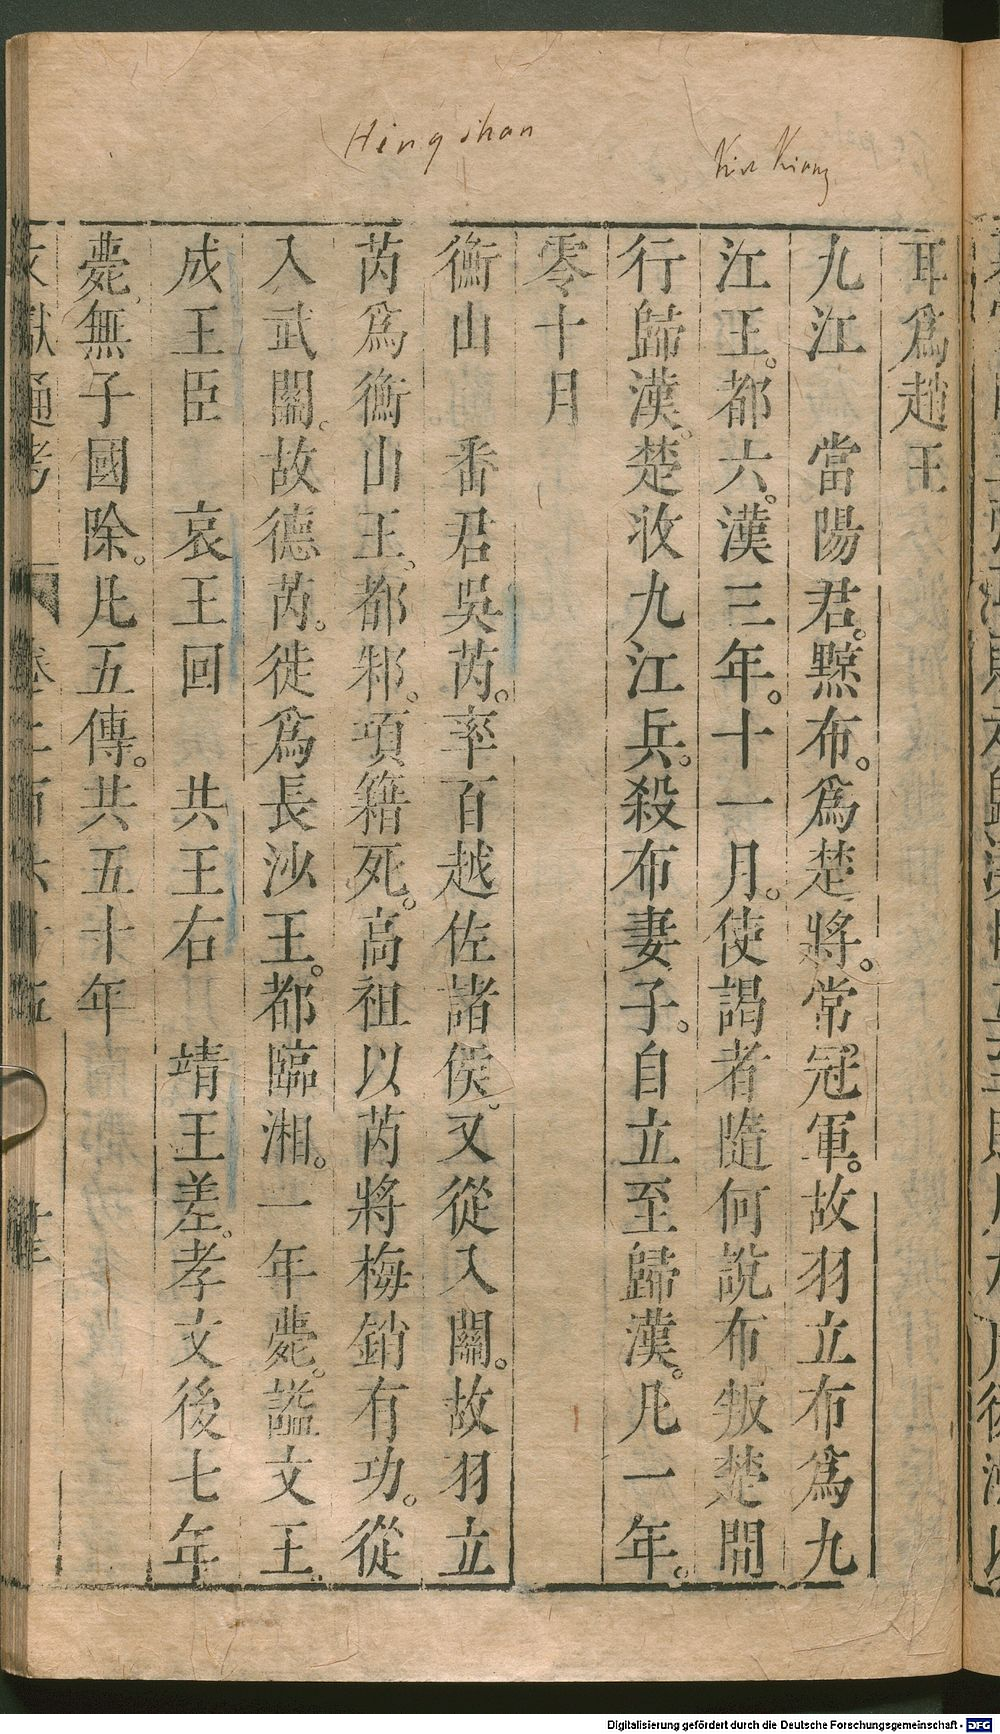 Hengshan
Kiu Kiang
耳爲趙王
九江　當陽君。黥布。爲楚將。常冠軍。故羽立布爲九
江王。都六。漢三年。十一月。使謁者隨何說布叛楚間
行歸漢。楚收九江兵。殺布妻子。自立至歸漢。凡一年。
零十月
衡山　番君吳芮。率百越佐諸侯。又從入關。故羽立
芮爲衡山王。都邾。項籍死。高祖以芮將梅鋗有功。從
入武關。故德芮。徙爲長沙王。都臨湘。一年薨。謚文王。
成王臣　哀王回　共王右　靖王差。孝文後七年
薨。無子國除。凡五傳。共五十年
文獻通考　卷二百六十五
Digitalisierung gefördert durch die Deutsche Forschungsgemeinschaft - DFG